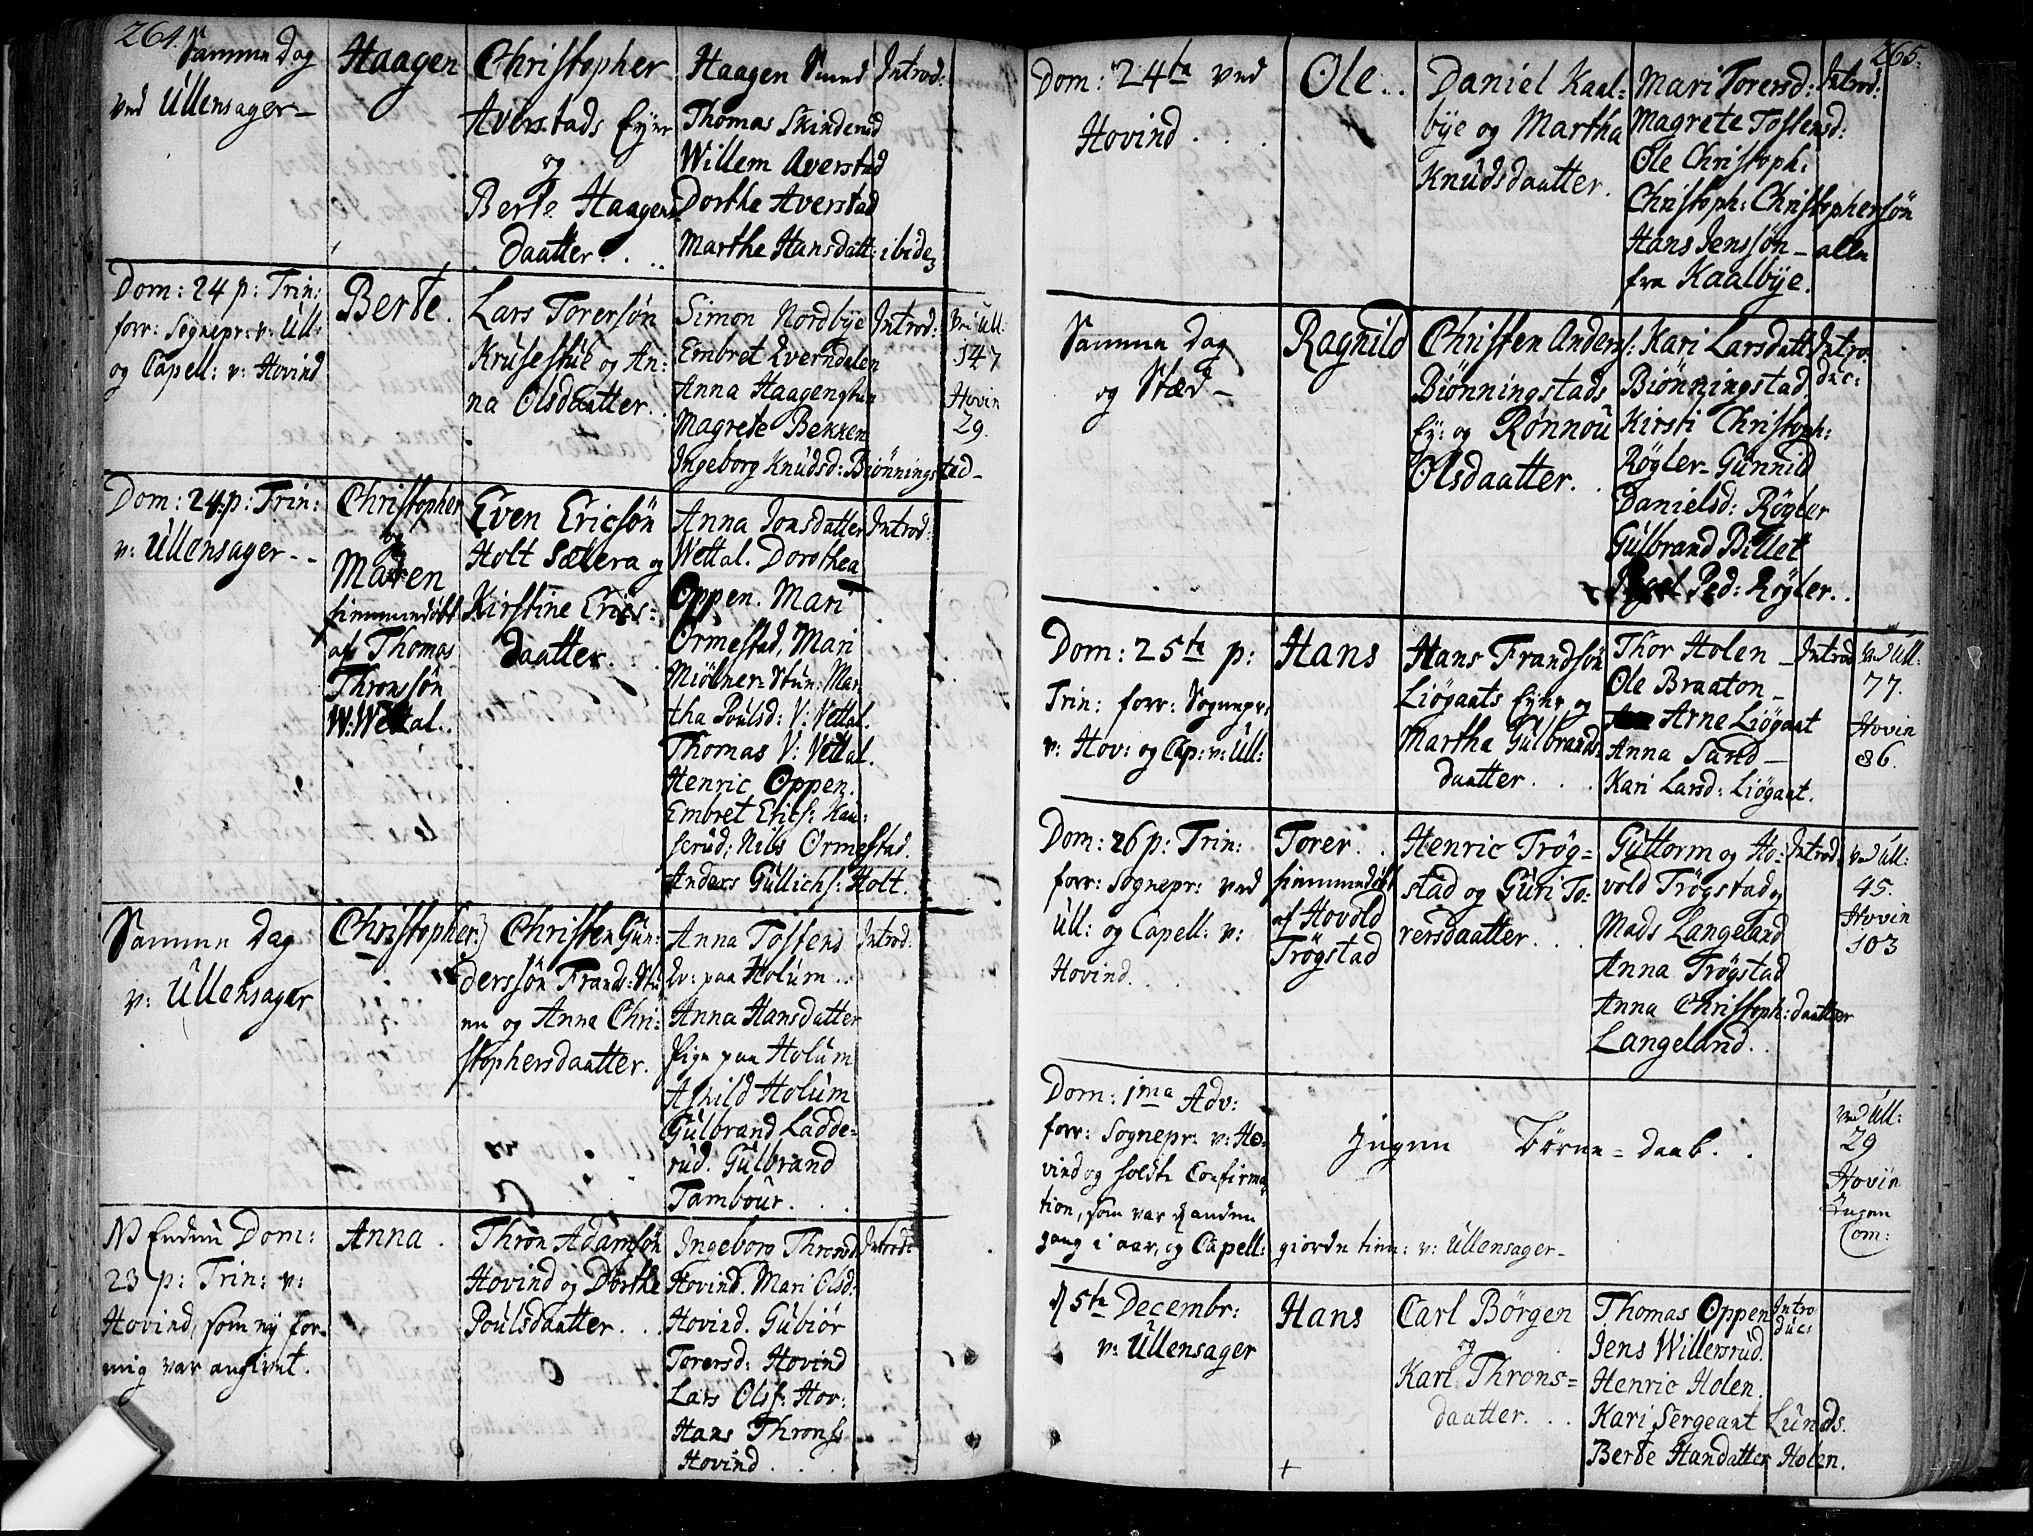 264.
Samme Dag
ved Ullensager
Haagen
Christopher
Averstads Eyer
og
Berte Haagens
daatter. . .
Haagen
Thomas Skinderud
Willem Averstad
Dorthe Averstad
Marthe Hansdatt: ibidem
Introd:
Dom: 24 p: Trin:
forr: Sognepr: v: Ull:
og Capell: v: Hovind
Berte.
Lars Torersøn
Krusestue og An:
na Olsdaatter.
Simon Nordbye
Embret Qverndalen
Anna Haagenstun
Magrete Bekken
Ingeborg Knudsd: Biønningstad
Introd:
Ved Ull.
147
Hovin
29.
Dom: 24. p: Trin:
v: Ullensager - -
Christopher
og
Maren
hiemmedøbt
af Thomas
Thronsøn
W: Wettal. .
Even Ericsøn
Holt Sætera og
Kirstine Erics:
daatter. . .
Anna Jonsdatter
Wettal. Dorothea
Oppen. Mari
Ormestad, Mari
Miølner-Stun: Mar
tha Poulsd: V: Vettal.
Thomas V: Vettal.
Henric Oppen.
Embret Erics: Kau:
serud: Nils Ormestad.
Anders Gullichs: Holt.
Introd:
Samme Dag
v: Ullensager
Christopher:
Christen Gun:
dersøn Frand: Stu
en og Anne Chri:
stophersdaatter.
Anna Tostens
Ev: paa Holum . .
Anna Hansdatter
Pige paa Holum
Ashild Holum
Gulbrand Ladde=
rud. Gulbrand
Tambour. . . .
Introd.
NB Endnu Dom:
23 p: Trin: v:
Hovind, som ey for
mig var angivet.
Anna .
Thron Adamsøn
Hovind og Dorthe
Poulsdaatter. .
Ingeborg Thronsd:
Hovind. Mari Olsd:
Hovind. Gubiør
Torersd: Hovind
Lars Ols: Hov:
Hans Throns:
Hovind . . .
Introd:
265.
Dom: 24te ved
Hovind . . .
Ole . .
Daniel Kaal=
bye og Martha
Knudsdaatter.
Mari Torersd:
Magrete Tostensd:
Ole Christoph:
Christoph: Christophersøn
Hans Jenssøn - alle
fra Kaalbye.
Introd:
Samme Dag
og Stæd -
Ragnild
Christen Anders:
Biønningstads
Ey: og Rønnou
Olsdaatter. .
Kari Larsdatt
Biønningstad
Kirsti Christoph:
Røgler- Gunnild
Danielsd: Røgler
Gulbrand Billet
Ped: Røgler. .
Intro
duc:
Dom: 25te p:
Trin: forr: Sognepr:
v: Hov: og Cap: v: Ull:
Hans
Hans Frandsøn
Liøgaats Eyer og
Martha Gulbrands:
daatter . . .
Thor Holen -
Ole Braaton -
Arne Liøgaat
Anna Sand -
Kari Larsd: Liøgaat.
Introd
Ved Ull:
77.
Hovin
86.
Dom: 26 p: Trin:
forr: Sognepr: ved
Ull: og Capell: v:
Hovind. .
Torer. .
hiemmedøbt
af Hovold
Trøgstad
Henric Trøg=
stad og Guri To:
rersdaatter. . .
Guttorm og Ho:
vold Trøgstad og
Mads Langeland
Anna Trøgstad
Anna Christoph: daatter
Langeland. .
Introd:
Ved Ull:
45.
Hovin
103
Dom: 1ma Adv:
forr: Sognepr: v: Ho=
vind og holdte Confirma
tion, som var anden
gang i aar, og Capell: giorde tien: v: Ullensager-
Ingen Børne-daab. .
Ved Ull:
29
Hovin
Ingen
Com:
5te Decembr:
v: Ullensager
Hans
Carl Børgen
og
Kari Throns=
daatter. . .
Thomas Oppen
Jens Willersrud.
Henric Holen.
Kari Sergeant Lunds.
Berte Handatter Holen.
Intro
duc: